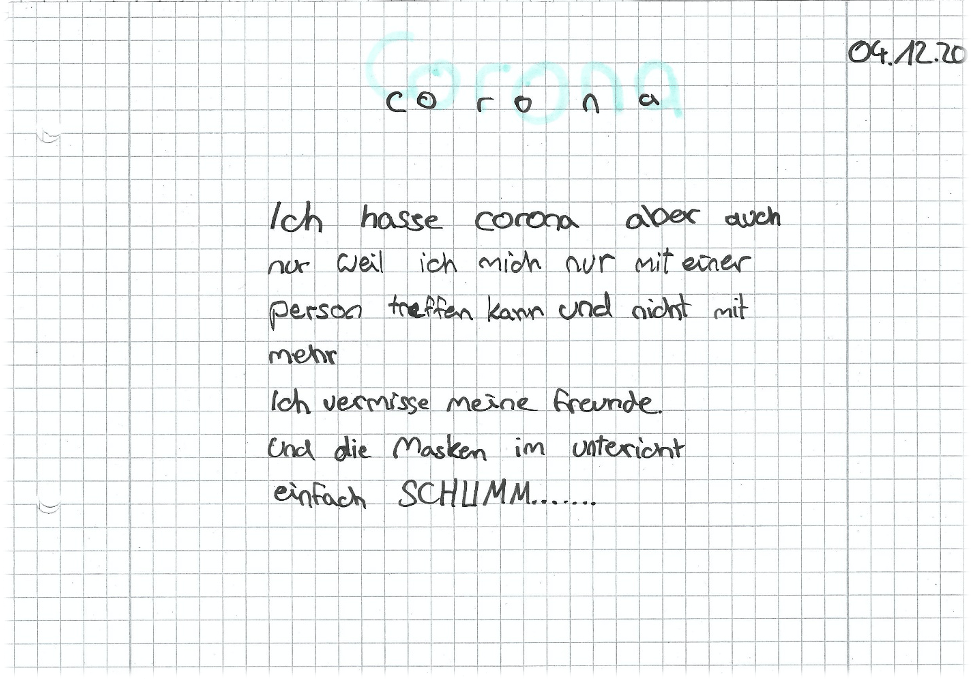 04.12.20
Corona
corona
Ich hasse corona aber auch
nur weil ich mich nur mit einer
person treffen kann und nicht mit
mehr
Ich vermisse meine freunde.
Und die Masken im untericht
einfach SCHLIMM.......